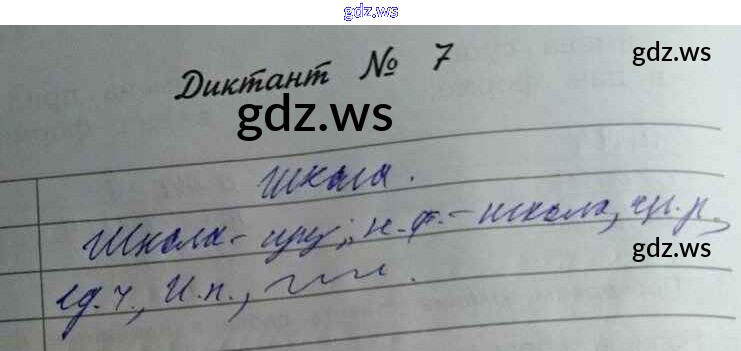 gdz.ws
gdz.ws
Диктант № 7
gdz.ws
Школа.
Школа - сущ; н.ф. - школа,
gdz.ws
ед.ч., И.п.,